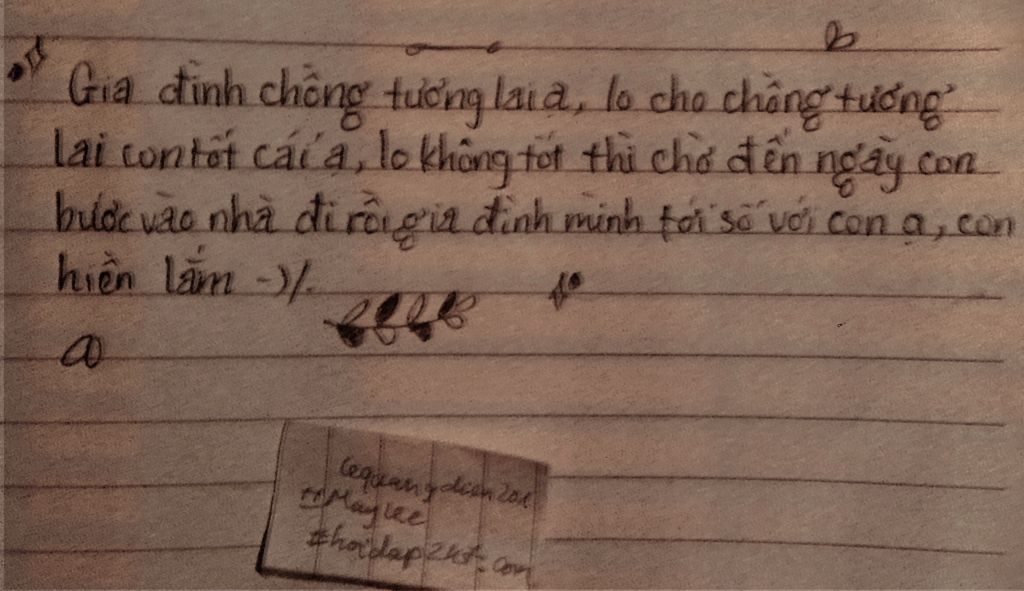 Gia đình chồng tương lai ạ, lo cho chồng tương
lai con tốt cái ạ, lo không tốt thì chờ đến ngày con
bước vào nhà đi rồi gia đình mình tới số với con ạ, con
hiền lắm -)/.
lequangdien201
Maylee
#hoidap247.com